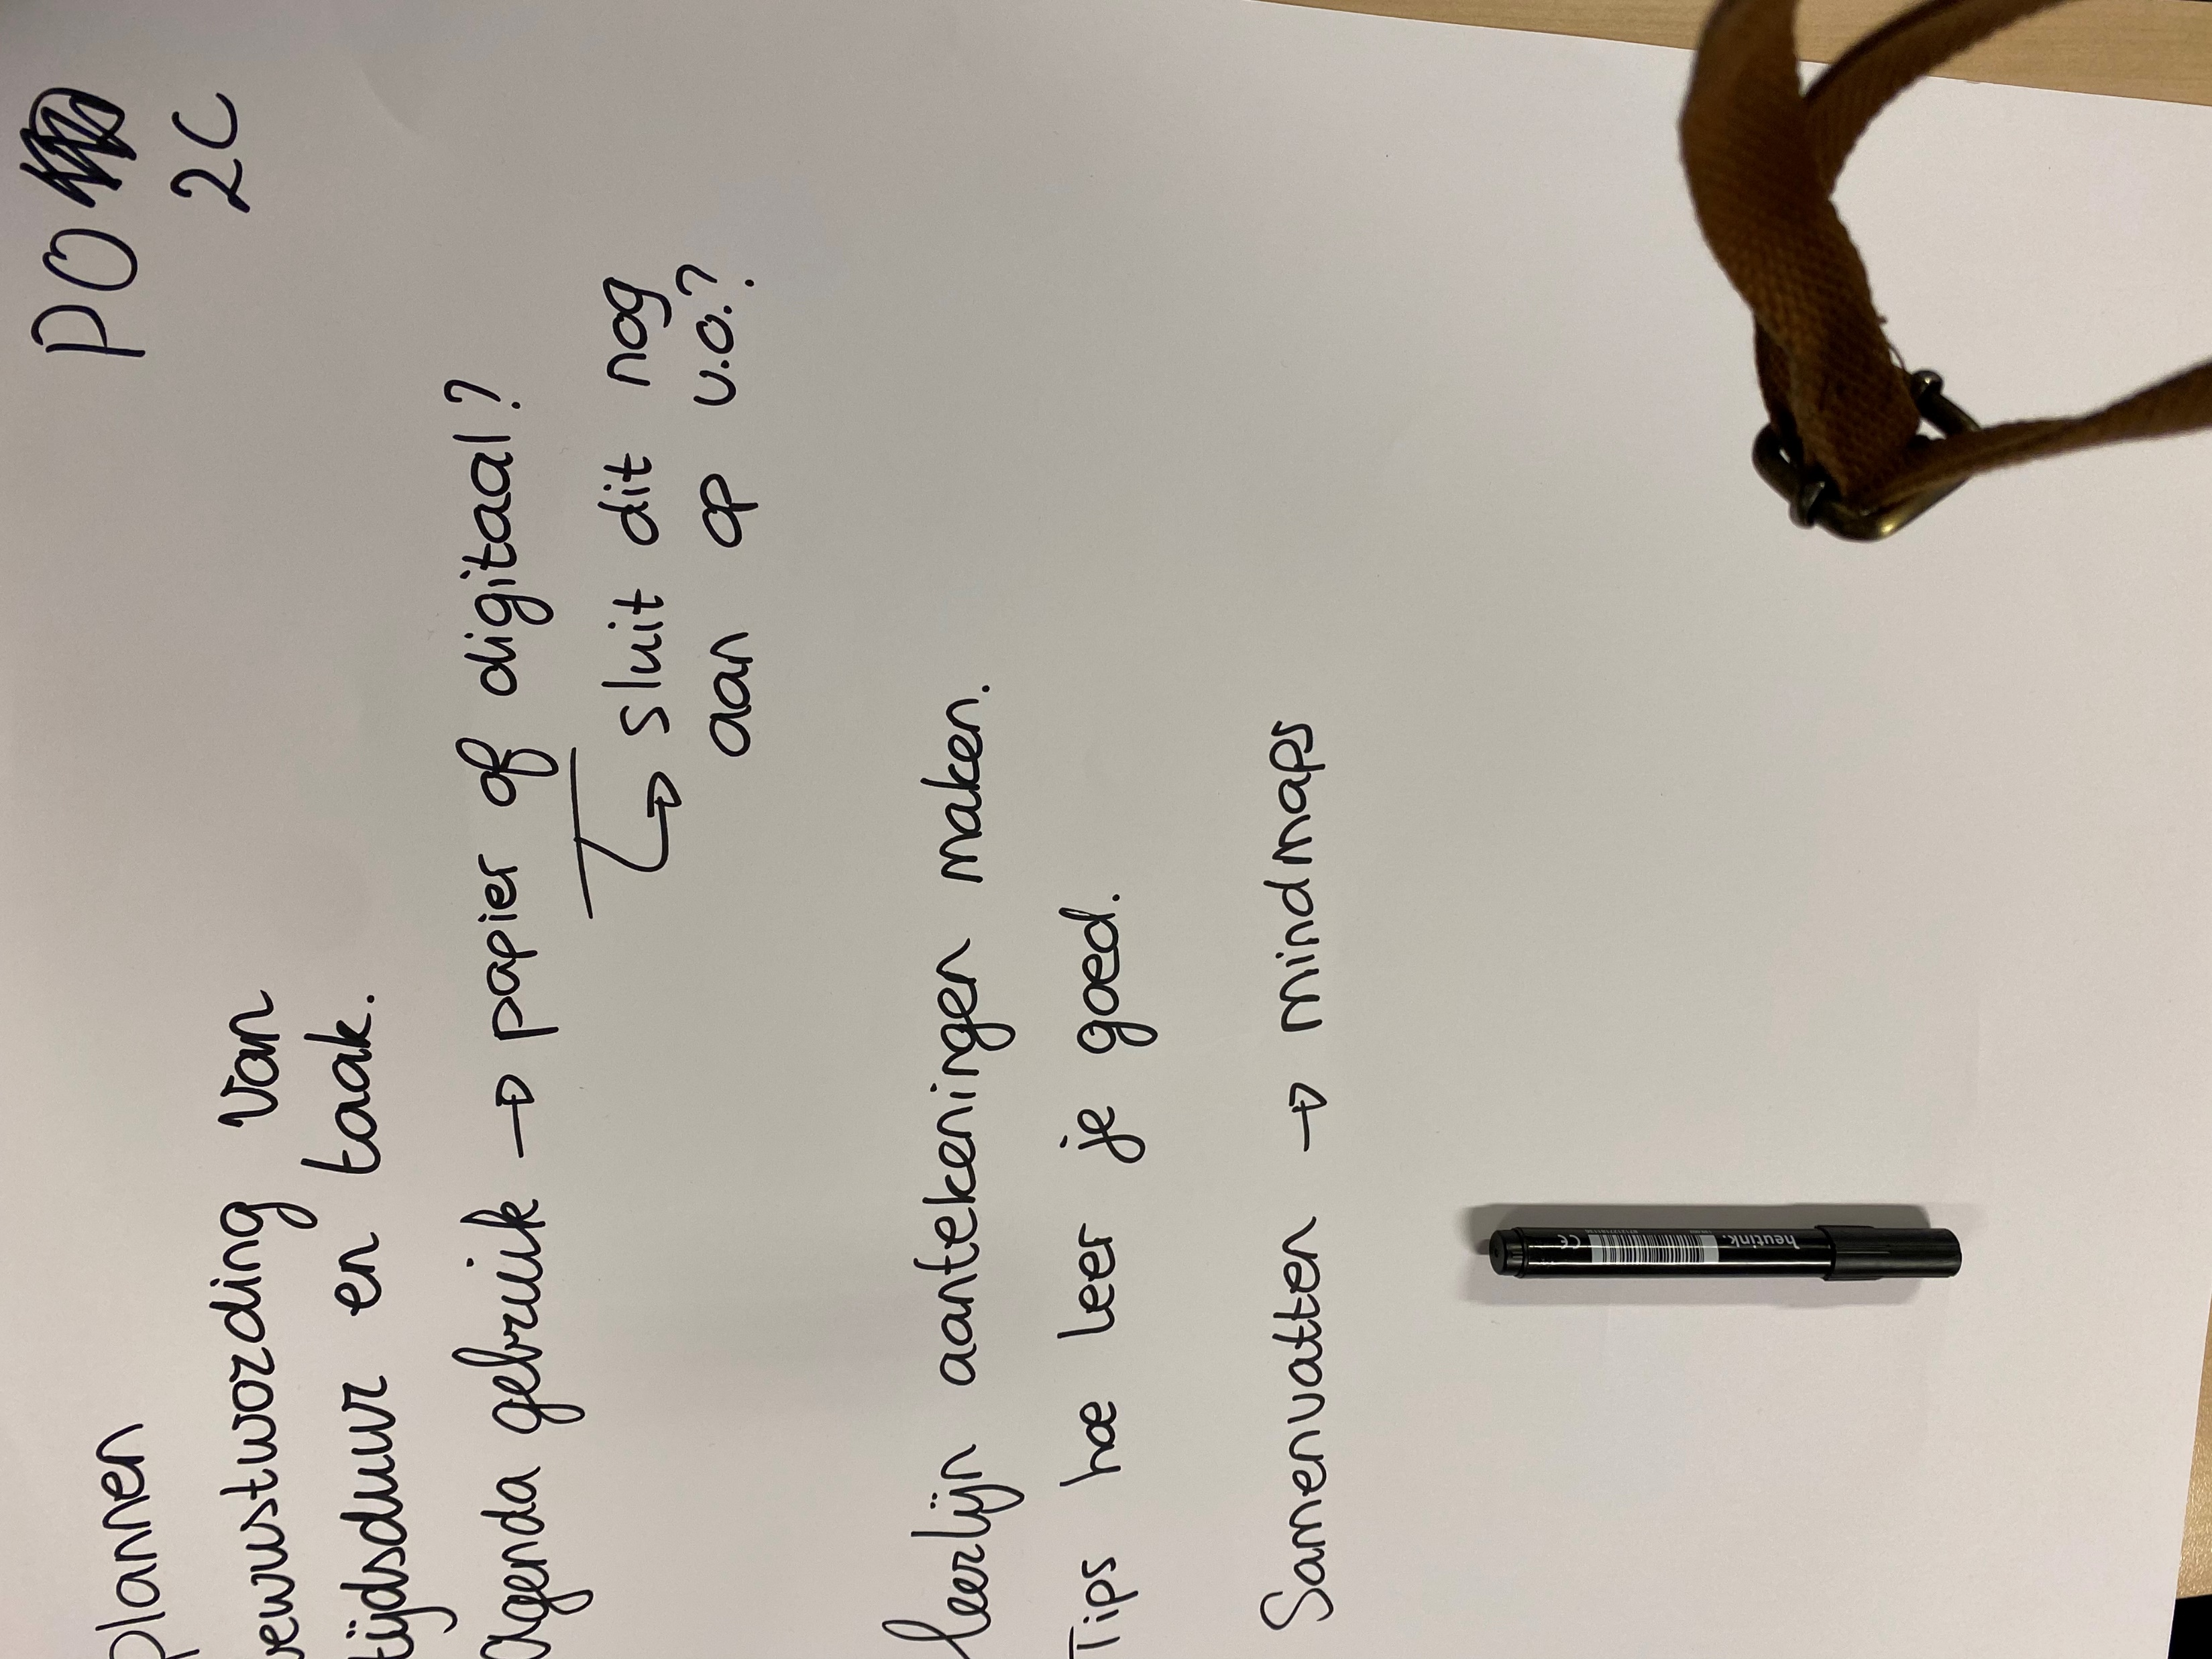 PO
2C
plannen
bewustwording van
tijdsduur en taak.
Agenda gebruik → papier of digitaal?
↳ sluit dit nog
aan op v.o.?
leerlijn aantekeningen maken.
Tips hoe leer je goed.
Samenvatten → mindmaps
heutink.
CE